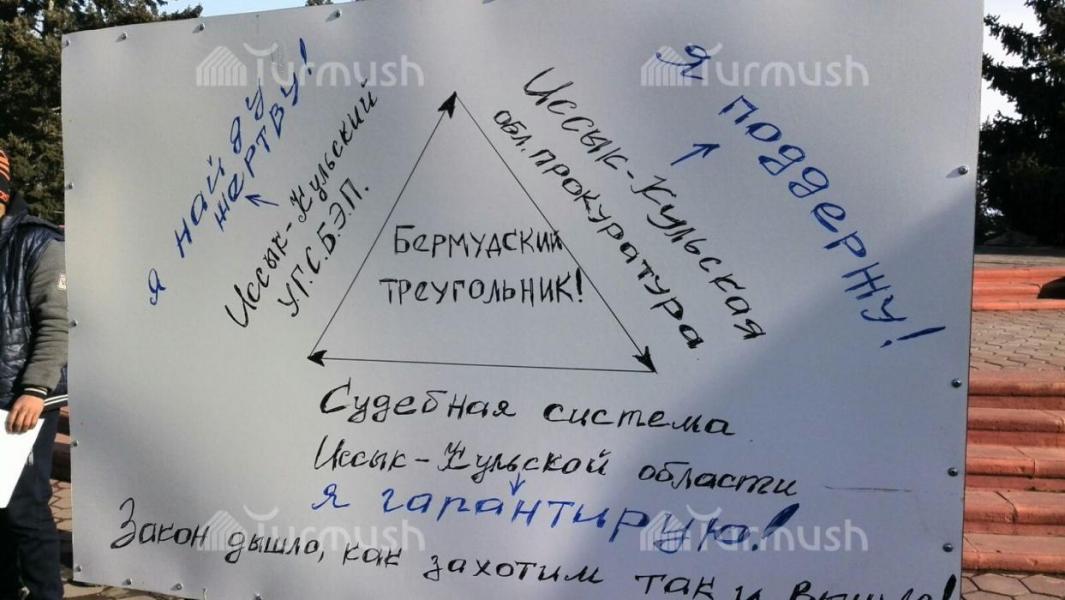 Я найду
жертву!
Иссык-Кульский
У.Г.С.Б.Э.П.
Я поддержу!
Иссык-Кульская
обл. прокуратура
Бермудский
треугольник!
Судебная система
Иссык-Кульской области
Я гарантирую!
Закон дышло, как захотим так и вышло!
Turmush
Turmush
Turmush
Turmush